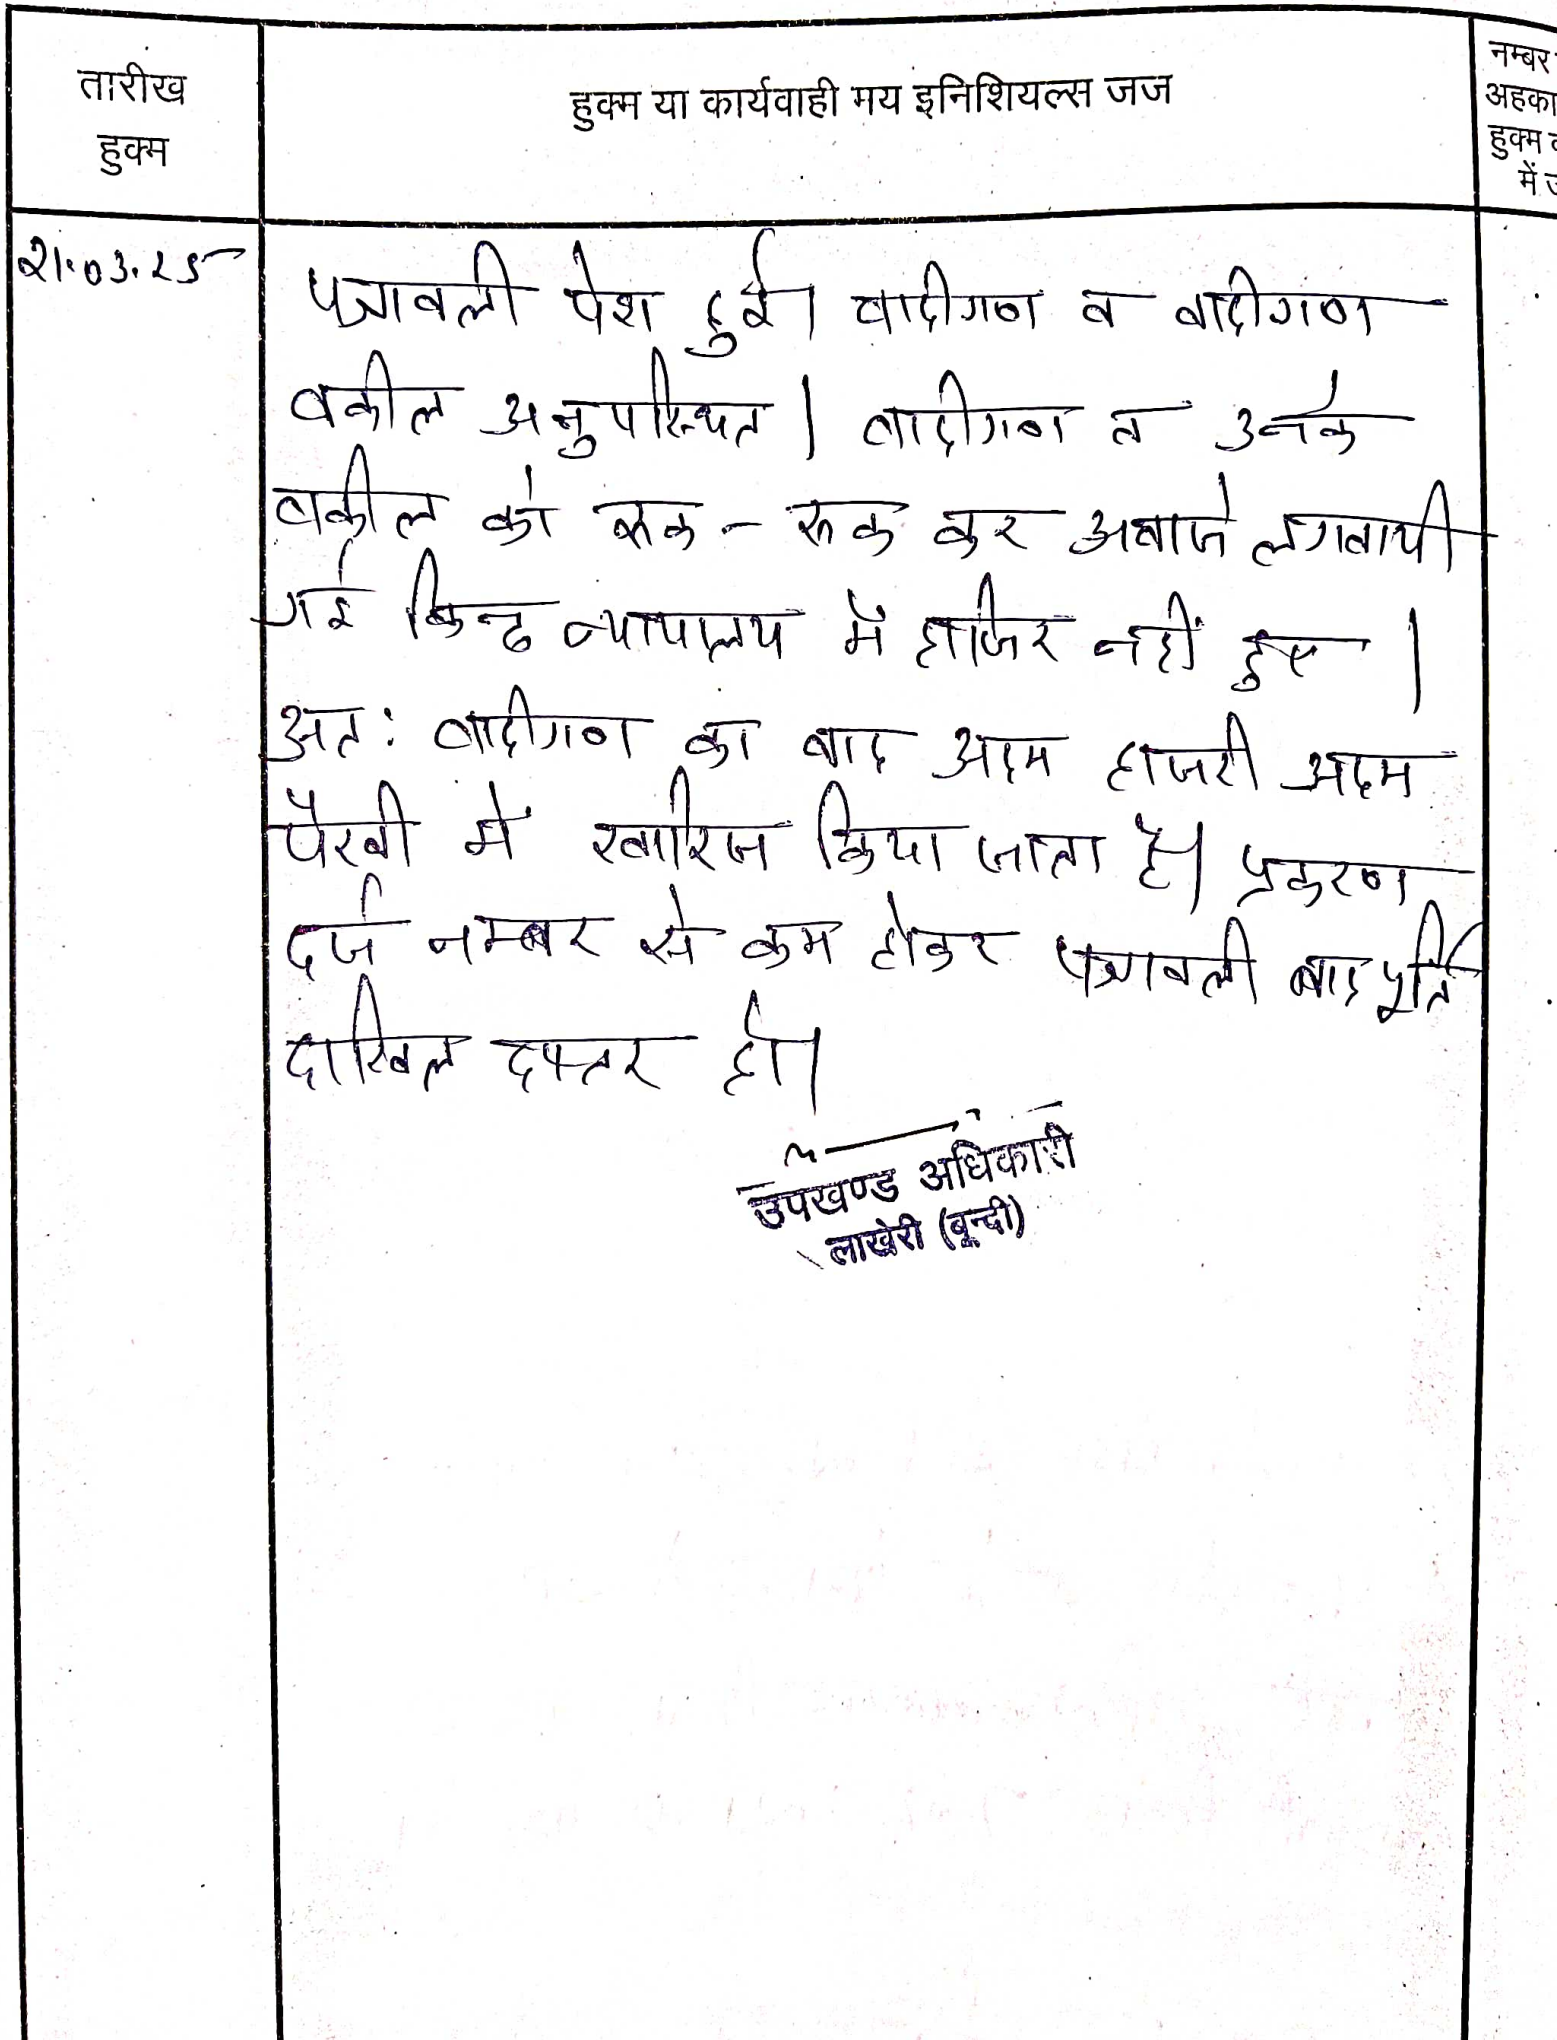 तारीख
हुक्म
हुक्म या कार्यवाही मय इनिशियल्स जज
नम्बर
अहका
हुक्म
में
21.03.25
पत्रावली पेश हुई। वादीगण व वादीगण
वकील अनुपस्थित। वादीगण व उनके
वकील को रूक-रूक कर अवाजे लगवायी
गई किन्तु न्यायालय में हाजिर नहीं हुए।
अतः वादीगण का वाद अदम हाजरी अदम
पैरवी में खारिज किया जाता है। प्रकरण
दर्ज नम्बर से कम होकर पत्रावली बाद पूर्ति
दाखिल दफ्तर हो।
उपखण्ड अधिकारी
लाखेरी (बून्दी)